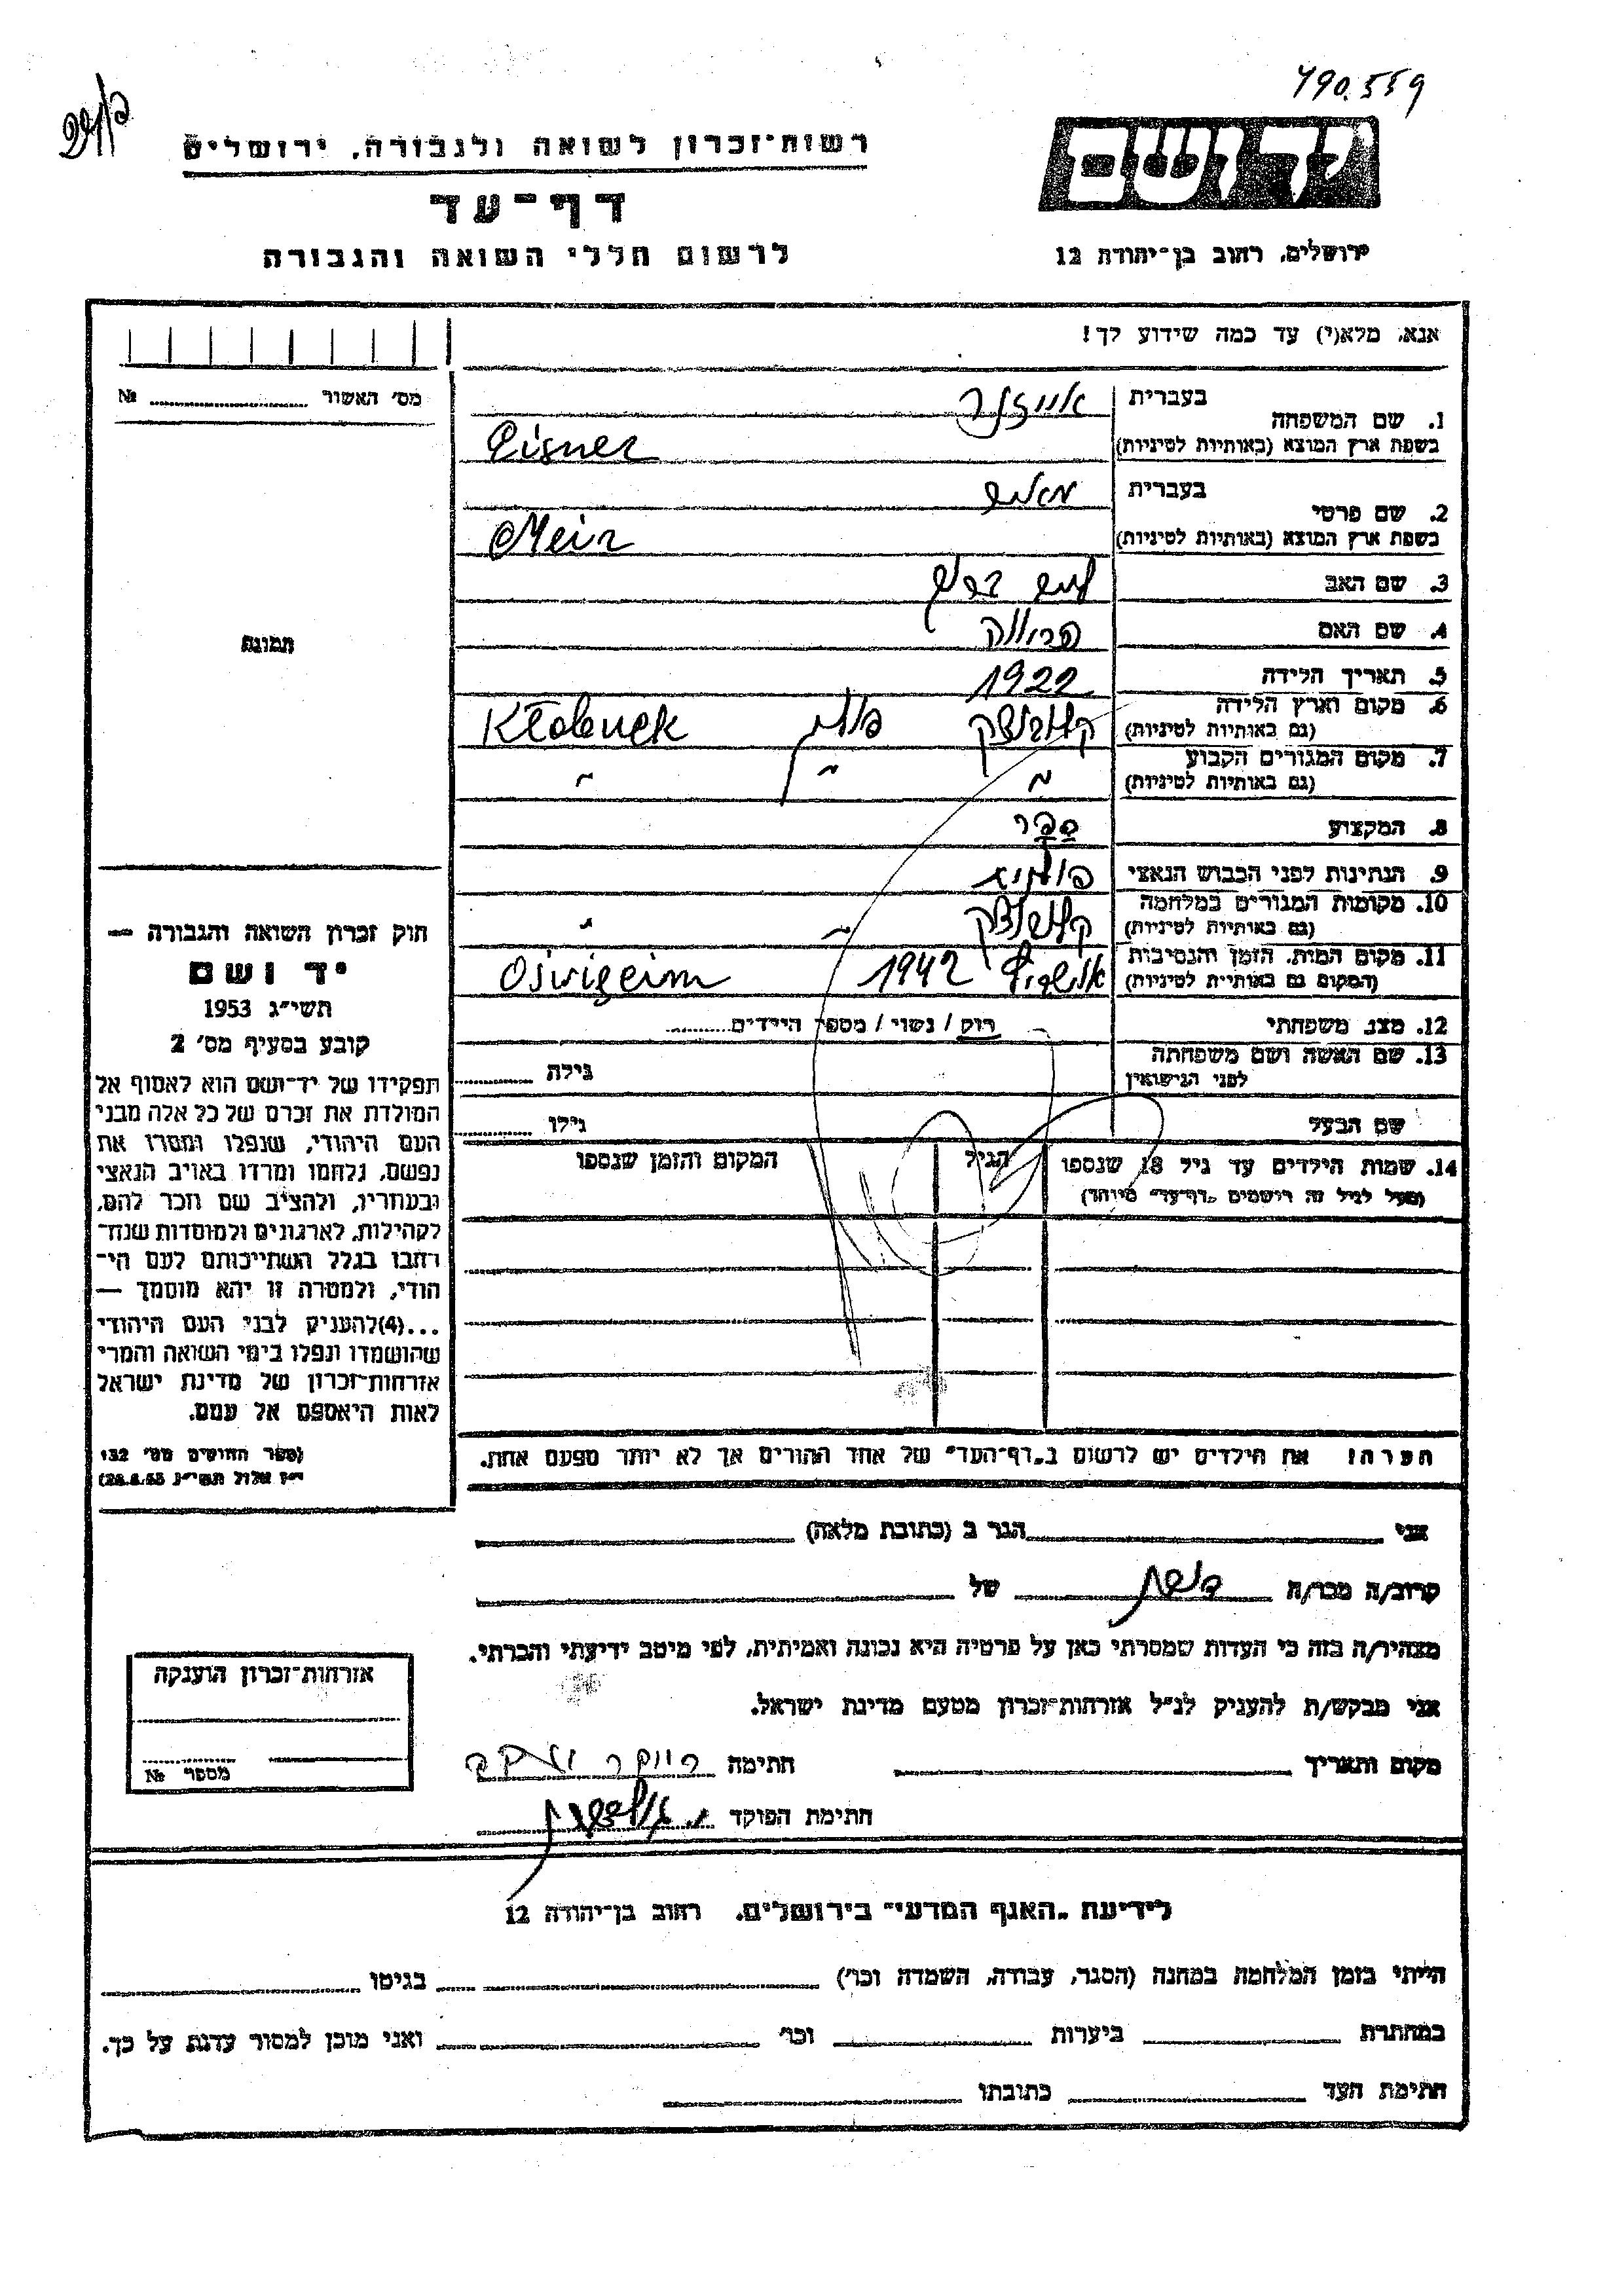 490.559
יד ושם
ירושלים, רחוב בן־יהודה 12
רשות־זכרון לשואה ולגבורה, ירושלים
דף־עד
לרשום חללי השואה והגבורה
אנא, מלא(י) עד כמה שידוע לך!
מס׳ האשור №
1. שם המשפחה
בעברית אייזנר
בשפת ארץ המוצא (באותיות לטיניות) Eisner
2. שם פרטי
בעברית
בשפת ארץ המוצא (באותיות לטיניות) Meir
3. שם האב
4. שם האם
5. תאריך הלידה 1922
6. מקום וארץ הלידה
(גם באותיות לטיניות) קלובוצק פולין Kłobuck
7. מקום המגורים הקבוע
(גם באותיות לטיניות) " " "
8. המקצוע ספר
9. הנתינות לפני הכבוש הנאצי פולנית
10. מקומות המגורים במלחמה
(גם באותיות לטיניות) קלובוצק " "
11. מקום המות, הזמן והנסיבות
(המקום גם באותיות לטיניות) אושביץ 1942 Oświęcim
12. מצב משפחתי רוק / נשוי / מספר הילדים
13. שם האשה ושם משפחתה
לפני הנישואין גילה
שם הבעל גילו
14. שמות הילדים עד גיל 18 שנספו הגיל המקום והזמן שנספו
(מעל לגיל זה רושמים „דף־עד״ מיוחד)
הערה! את הילדים יש לרשום ב„דף־העד״ של אחד ההורים אך לא יותר מפעם אחת.
תמונה
חוק זכרון השואה והגבורה —
יד ושם
תשי״ג 1953
קובע בסעיף מס׳ 2
תפקידו של יד־ושם הוא לאסוף אל
המולדת את זכרם של כל אלה מבני
העם היהודי, שנפלו ומסרו את
נפשם, נלחמו ומרדו באויב הנאצי
ובעוזריו, ולהציב שם וזכר להם,
לקהילות, לארגונים ולמוסדות שנח־
רבו בגלל השתייכותם לעם הי־
הודי, ולמטרה זו יהא מוסמך —
...(4)להעניק לבני העם היהודי
שהושמדו ונפלו בימי השואה והמרי
אזרחות־זכרון של מדינת ישראל
לאות היאספם אל עמם.
(ספר החוקים מס׳ 132,
י״ז אלול תשי״ג 28.8.53)
אני הגר ב (כתובת מלאה)
קרוב/ה מכר/ה של
מצהיר/ה בזה כי העדות שמסרתי כאן על פרטיה היא נכונה ואמיתית, לפי מיטב ידיעתי והכרתי.
אני מבקש/ת להעניק לנ״ל אזרחות־זכרון מטעם מדינת ישראל.
מקום ותאריך חתימה
חתימת הפוקד
אזרחות־זכרון הוענקה
מספר №
לידיעת „האגף המדעי״ בירושלים, רחוב בן־יהודה 12
הייתי בזמן המלחמה במחנה (הסגר, עבודה, השמדה וכו׳) בגיטו
במחתרת ביערות וכו׳ ואני מוכן למסור עדות על כך.
חתימת העד כתובתו